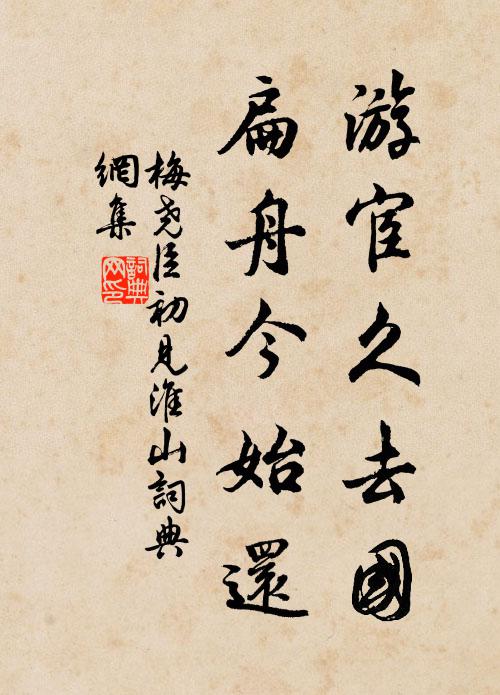 游宦久去國
扁舟今始還
梅堯臣初見淮山詞典
網集
詞典
网印